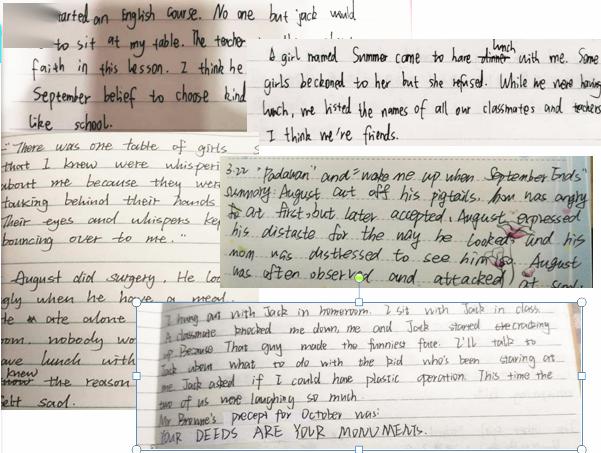 started an English course. No one but jack would
to sit at my table. The teacher
faith in this lesson. I think he
September belief to choose kind
like school.
A girl named Summer come to have dinner lunch with me. Some
girls beckoned to her but she refused. While we were having
lunch, we listed the names of all our classmates and teachers
I think we're friends.
"There was one table of girls
that I knew were whisperi
about me because they were
talking behind their hands
Their eyes and whispers kep
bouncing over to me."
August did surgery. He loo
gly when he have a meal.
He ate alone
om. nobody wo
ave lunch with
knew the reason
felt sad.
3.22 "Padawan" and "wake me up when September Ends"
summary: August cut off his pigtails. Mom was angry
at first, but later accepted. August expressed
his distaste for the way he looked and his
mom was distressed to see him so. August
was often observed and attacked at
I hung out with Jack in homeroom. I sit with Jack in class.
A classmate knocked me down, me and Jack started cracking
up Because That guy made the funniest face. I'll talk to
Jack about what to do with the kid who's been staring at
me Jack asked if I could have plastic operation. This time the
two of us were laughing so much
Mr Browne's precept for October was:
YOUR DEEDS ARE YOUR MONUMENTS.